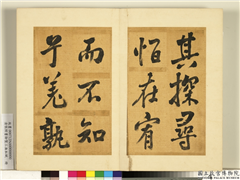 其探尋
恒在宥
而不知
兮羌孰
國立故宮博物院